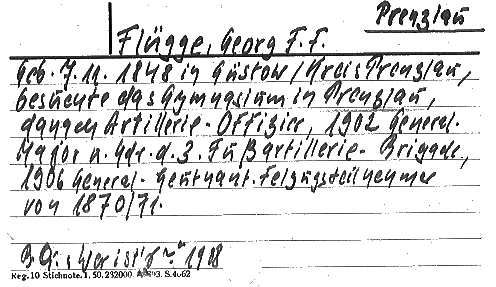 Prenzlau
Flügge, Georg F. F.
Geb. 7.11. 1848 in Güstow / Kreis Prenzlau,
besuchte das Gymnasium in Prenzlau,
dann Artillerie-Offizier, 1902 General-
Major u. Kdr. d. 3. Fußartillerie-Brigade,
1906 General-Leutnant. Feldzugsteilnehmer
von 1870/71.
BQ: "Wer ist's?" 1908
Reg. 10 Stichnote. 1. 50. 232000. 3. S. 4062